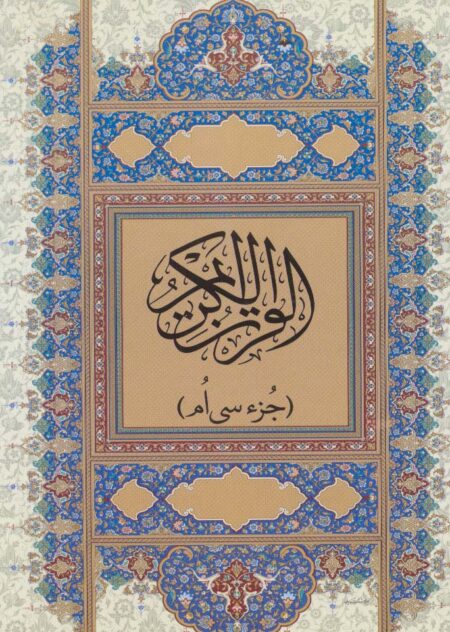 القرآن الکریم
(جُزء سی اُم)